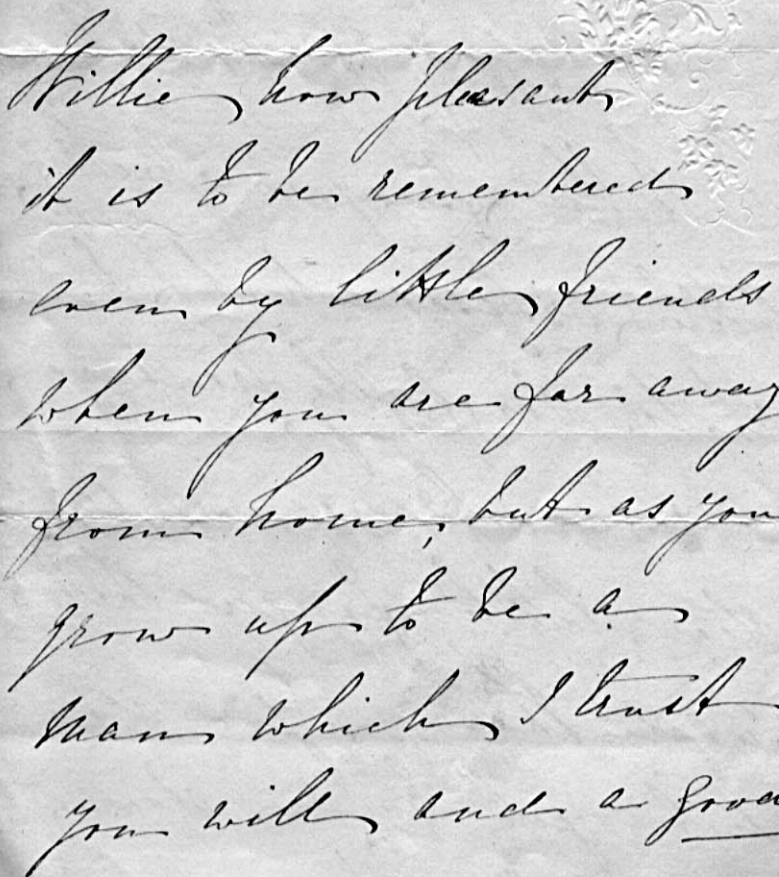 Willie how pleasant
it is to be remembered
even by little friends
when you are far away
from home, but as you
grow up to be a
man which I trust
you will and a good